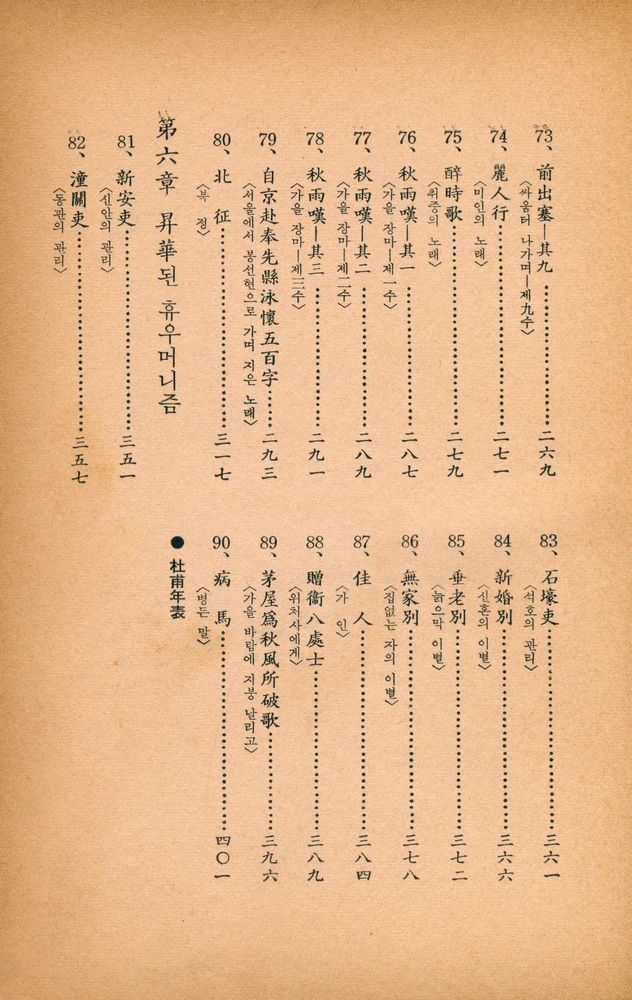 73、前出塞―其九……二六九
〈싸움터 나가며―제九수〉
74、麗人行……二七一
〈미인의 노래〉
75、醉時歌……二七九
〈취중의 노래〉
76、秋雨嘆―其一……二八七
〈가을 장마―제一수〉
77、秋雨嘆―其二……二八九
〈가을 장마―제二수〉
78、秋雨嘆―其三……二九一
〈가을 장마―제三수〉
79、自京赴奉先縣泳懷五百字……二九三
〈서울에서 봉선현으로 가며 지은 노래〉
80、北征……三一七
〈북 정〉
第六章 昇華된 휴우머니즘
81、新安吏……三五一
〈신안의 관리〉
82、潼關吏……三五七
〈동관의 관리〉
83、石壕吏……三六一
〈석호의 관리〉
84、新婚別……三六六
〈신혼의 이별〉
85、垂老別……三七二
〈늙으막 이별〉
86、無家別……三七八
〈집없는 자의 이별〉
87、佳人……三八四
〈가 인〉
88、贈衞八處士……三八九
〈위처사에게〉
89、茅屋爲秋風所破歌……三九六
〈가을 바람에 지붕 날리고〉
90、病馬……四〇一
〈병든 말〉
● 杜甫年表